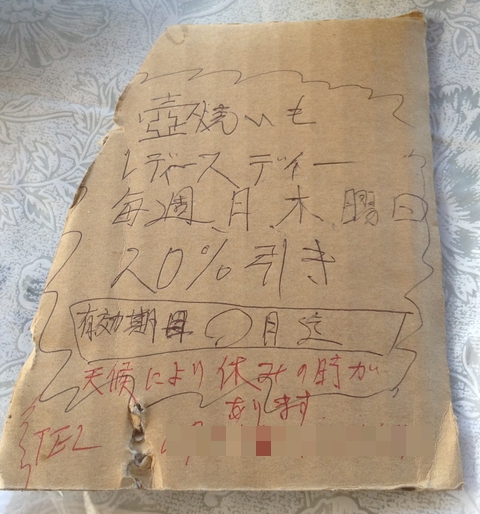 壺焼いも
レディース ディー
毎週 月、木、曜日
20%引き
有効期日 〇月迄
天候により休みの時が
あります
TEL